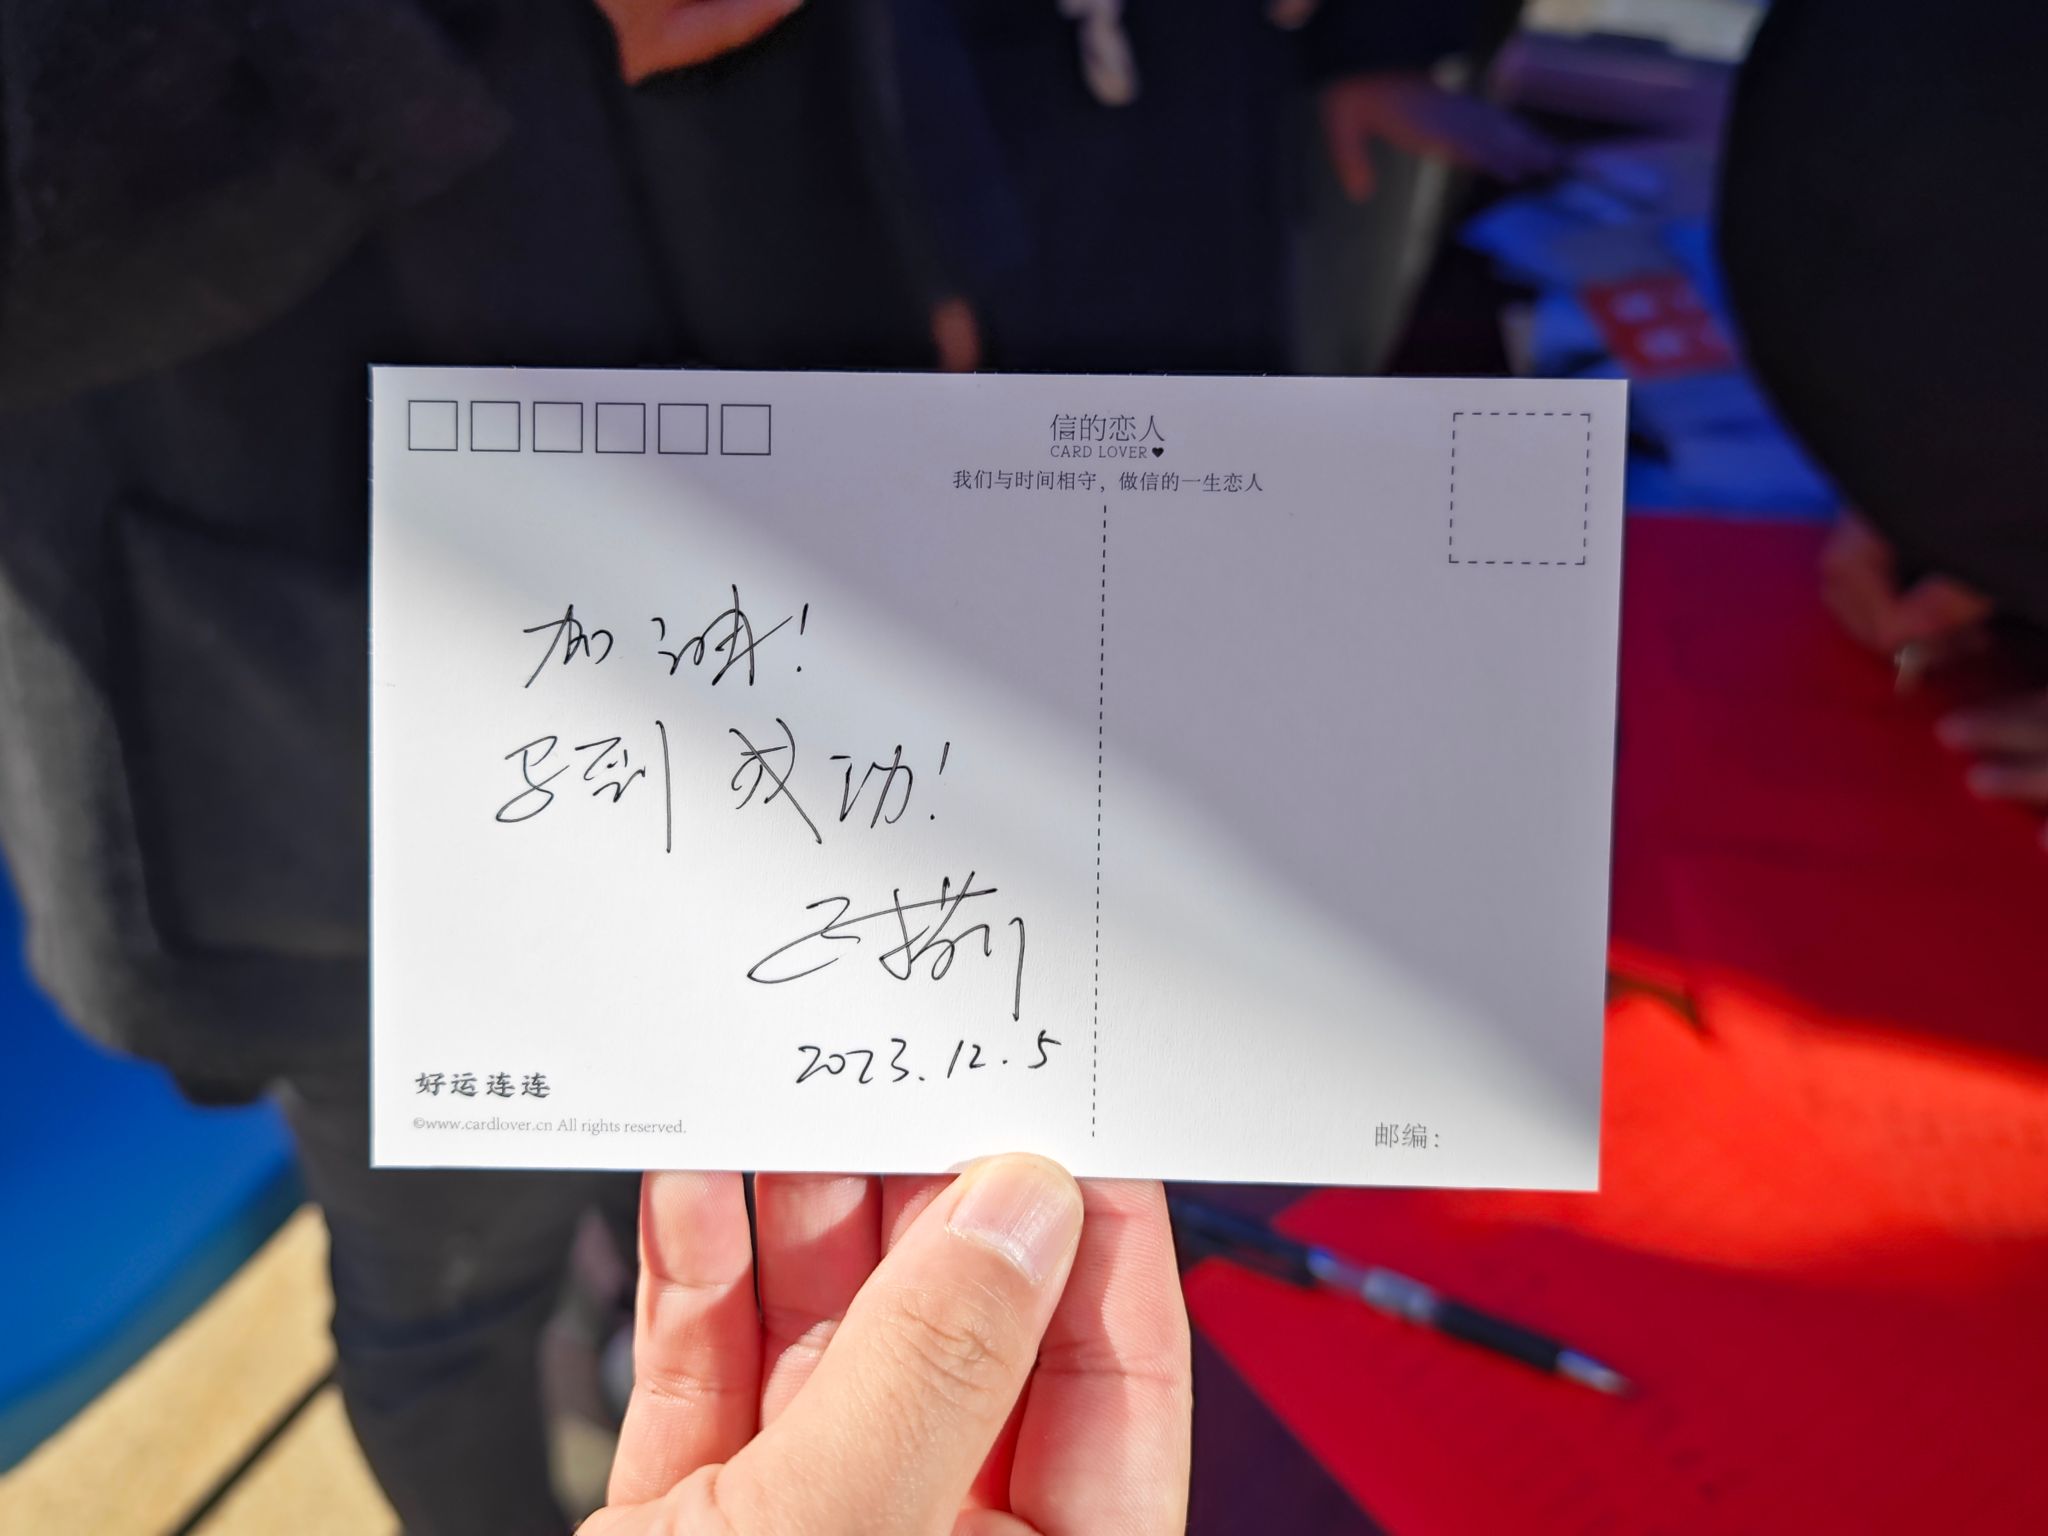 信的恋人
CARD LOVER♥
我们与时间相守，做信的一生恋人
加油！
马到成功！
2023.12.5
好运连连
©www.cardlover.cn All rights reserved.
邮编：